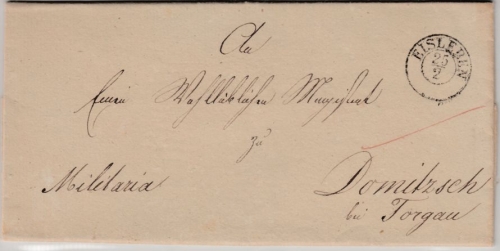 An
EISLEBEN
25
2
Einen Wohllöblichen Magistrat
zu
Militaria
Domitzsch
bei Torgau